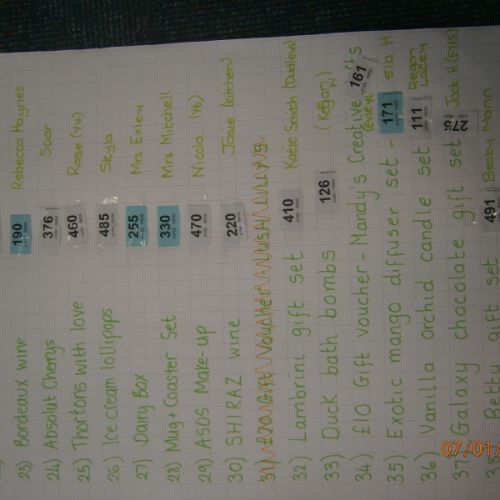 23) Bordeaux wine 190 Rebecca Haynes
24) Absolut Cherrys 376 Saar
25) Thortons with love 460 Rosse (Y4)
26) Ice cream lollipops 485 Skyla
27) Dairy Box 255 Mrs Exley
28) Mug + Coaster Set 330 Mrs Mitchell
29) ASOS Make-up 470 Nicola (Y6)
30) SHIRAZ wine 220 Josie (kitchen)
31) £20 Gift Voucher
32) Lambrini gift set 410 Katie Smith (Dudleys)
33) Duck bath bombs 126 (Kegan)
34) £10 Gift Voucher - Mandy's Creative 161
35) Exotic mango diffuser set - 171 Ella H
36) Vanilla orchid candle set 111
37) Galaxy chocolate gift set 275 Jack H (EYFS)
38) Betty gift set 491 Mann
07/01/